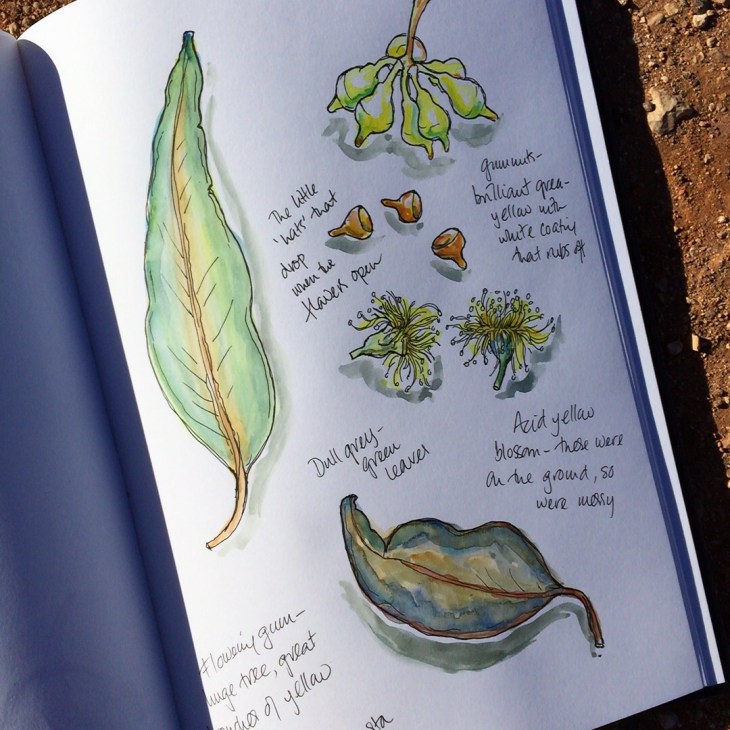 The little
'hats' that
drop
when the
flowers open
gumnuts-
brilliant green-
yellow with
white coating
that rubs off
Dull grey-
green
leaves
Acid yellow
blossom - these were
on the ground, so
were messy
Flowering gum-
huge tree, great
of yellow